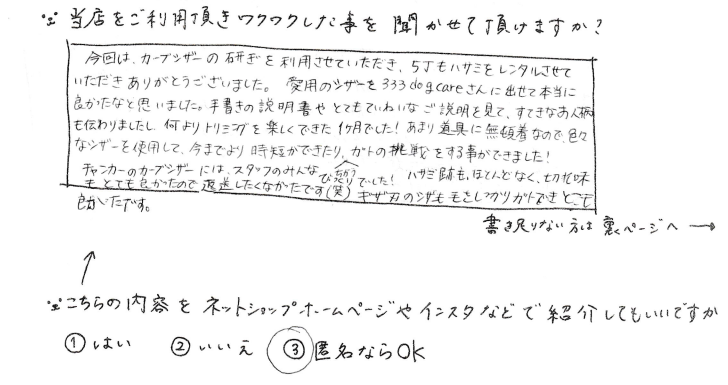 当店をご利用頂きワクワクした事を聞かせて頂けますか?
今回は、カーブシザーの研ぎを利用させていただき、5丁もハサミをレンタルさせて
いただきありがとうございました。愛用のシザーを333dogcareさんに出せて本当に
良かったなと思いました。手書きの説明書やとてもていねいなご説明を見て、すてきなお人柄
も伝わりましたし、何よりトリミングを楽しくできた1ケ月でした!あまり道具に無頓着なので、色々
なシザーを使用して、今までより時短ができたり、カットの挑戦をする事ができました!
チャンカーのカーブシザーには、スタッフのみんなびっくりでした!ハサミ跡も、ほとんどなく、切れ味
もとても良かったので返送したくなかったです(笑)ギザ刃のシザも毛をしっかりカットできとても
良かったです。
書き足りない方は裏ページへ→
こちらの内容をネットショップホームページやインスタなどで紹介してもいいですか
①はい ②いいえ ③匿名ならOK